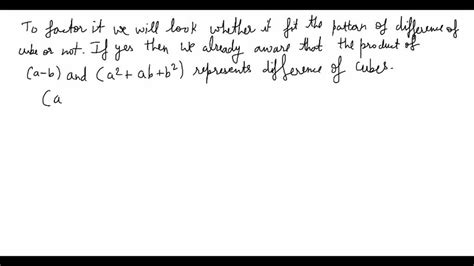 To factor it we will look whether it fit the pattern of difference of
cube or not. If yes then we already aware that the product of
(a-b) and (a²+ab+b²) represents difference of cubes.
(a